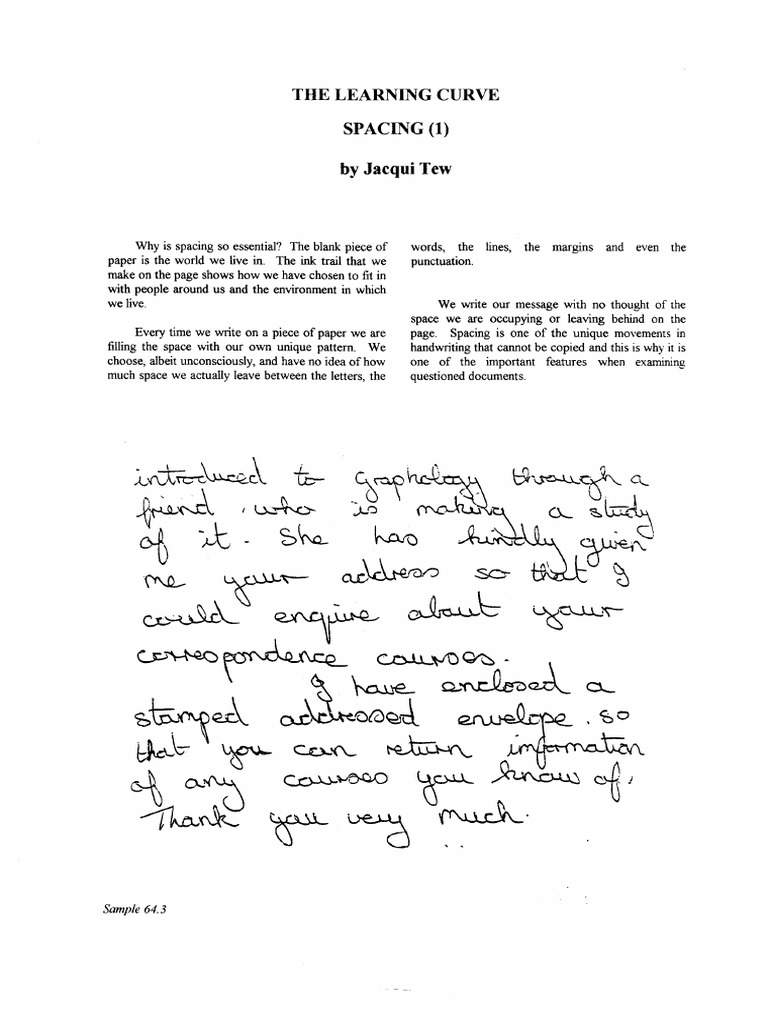 THE LEARNING CURVE
SPACING (1)
by Jacqui Tew
Why is spacing so essential? The blank piece of
paper is the world we live in. The ink trail that we
make on the page shows how we have chosen to fit in
with people around us and the environment in which
we live.
Every time we write on a piece of paper we are
filling the space with our own unique pattern. We
choose, albeit unconsciously, and have no idea of how
much space we actually leave between the letters, the
words, the lines, the margins and even the
punctuation.
We write our message with no thought of the
space we are occupying or leaving behind on the
page. Spacing is one of the unique movements in
handwriting that cannot be copied and this is why it is
one of the important features when examining
questioned documents.
introduced to graphology through a
friend, who is making a study
of it. She has kindly given
me your address so that I
could enquire about your
correspondence courses.
I have enclosed a
stamped addressed envelope, so
that you can return information
of any courses you know of.
Thank you very much.
Sample 64.3